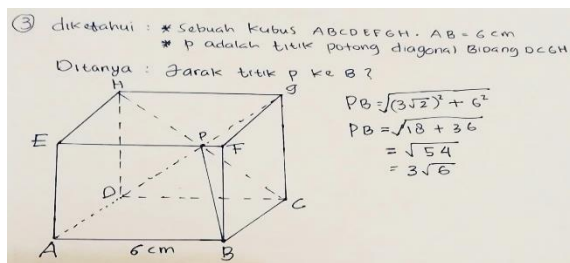 ③ diketahui : * Sebuah Kubus ABCDEFGH. AB = 6 cm
* P adalah titik potong diagonal Bidang DCGH
Ditanya : Jarak titik P ke B ?
H
g
E
P
F
D
C
A
6 cm
B
PB = √(3√2)² + 6²
PB = √18 + 36
= √54
= 3√6